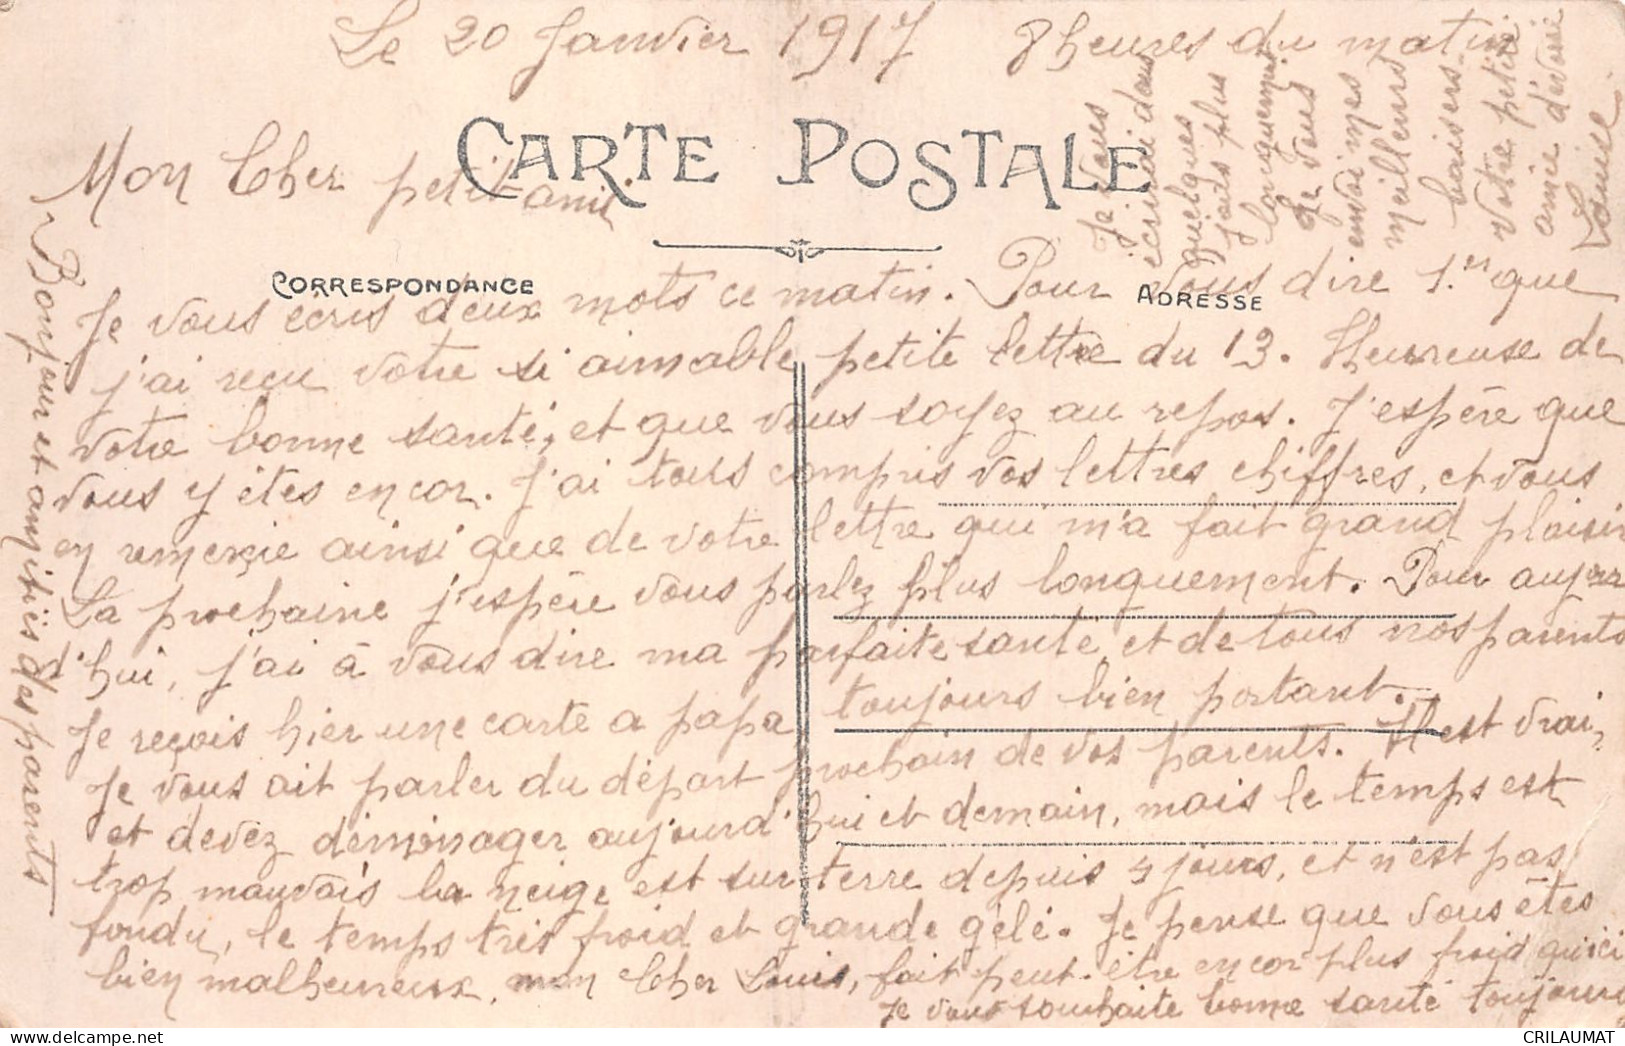 Le 20 Janvier 1917 8 heures du matin
CARTE POSTALE
Mon Cher petit ami
CORRESPONDANCE
ADRESSE
Je vous écris deux mots ce matin. Pour vous dire 1.er que
j'ai reçu votre si aimable petite lettre du 13. Heureuse de
votre bonne santé, et que vous soyez au repos. J'espère que
vous y êtes encor. J'ai tous compris vos lettres chiffres, et vous
en remerçie ainsi que de votre lettre qui m'a fait grand plaisir
La prochaine j'espère vous parlez plus longuement. Pour aujour
d'hui, j'ai à vous dire ma parfaite santé et de tous nos parents
toujours bien portant.
Je reçois hier une carte a papa
Je vous ait parler du départ prochain de vos parents. Il est vrai,
et devez démènager aujourd'hui et demain, mais le temps est
trop mauvais la neige est sur terre depuis 4 jours, et n'est pas
fondu, le temps très froid et grande gélé. Je pense que vous êtes
bien malheureux, mon Cher Louis, fait peut-être encor plus froid qu'ici
Je vous souhaite bonne santé toujours
Je vous
écrirai dans
quelques
jours plus
longuement
Je vous
envoi mes
meilleurs
baisers.
Votre petite
amie dévoué
Louise
Bonjour et amitiés des parents
CRILAUMAT